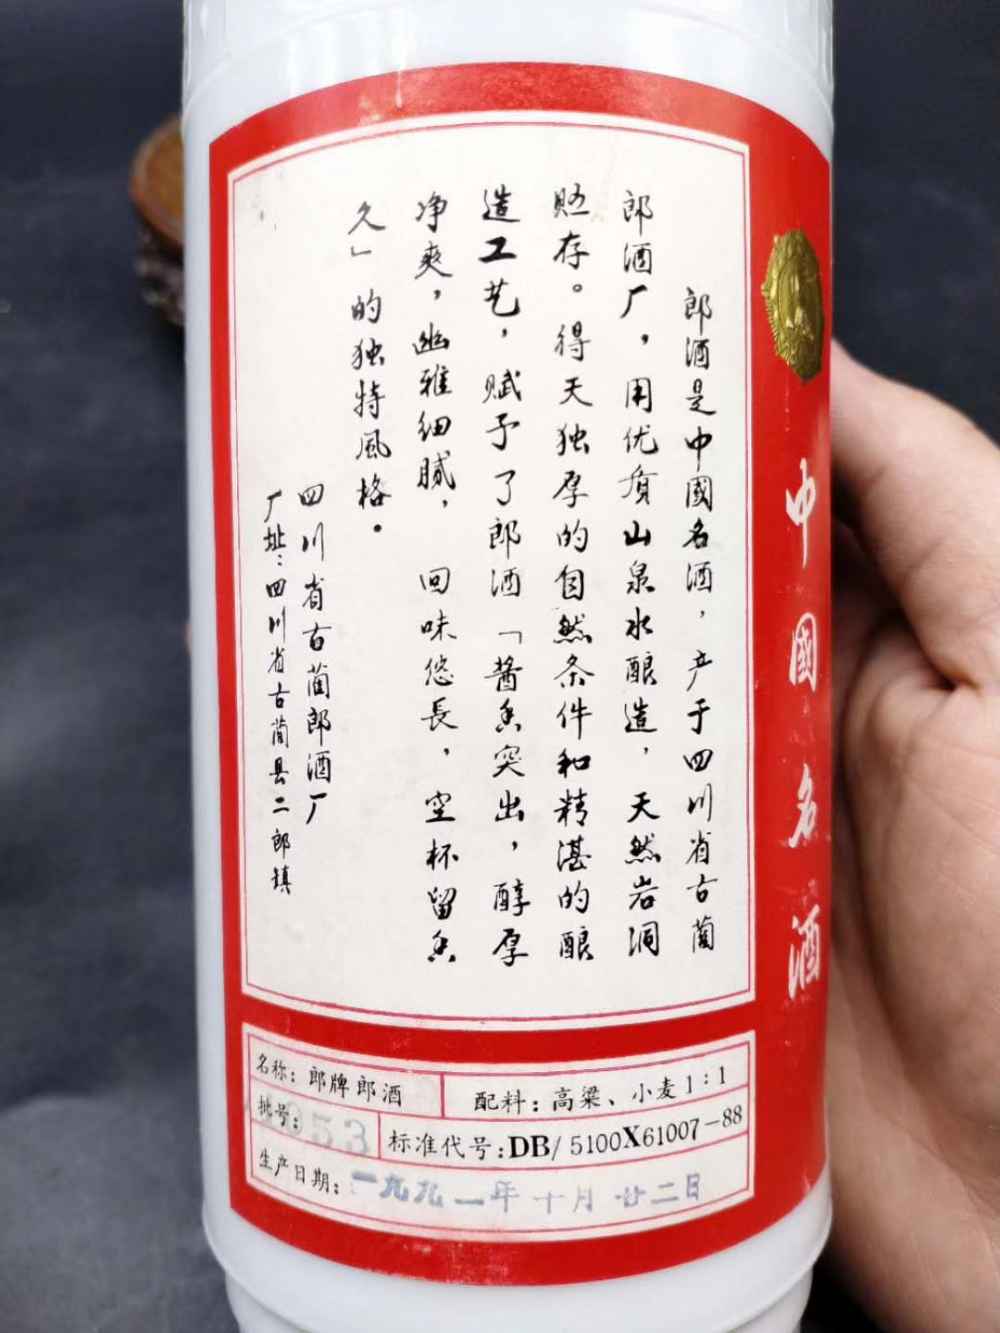 郎酒是中國名酒，产于四川省古蔺
郎酒厂，用优质山泉水酿造，天然岩洞
贮存。得天独厚的自然条件和精湛的酿
造工艺，赋予了郎酒「酱香突出，醇厚
净爽，幽雅细腻，回味悠長，空杯留香
久」的独特風格。
四川省古蔺郎酒厂
厂址：四川省古蔺县二郎镇
中國名酒
名称：郎牌郎酒
配料：高粱、小麦1：1
批号：
标准代号：DB/5100X61007-88
生产日期：一九九一年十月廿二日